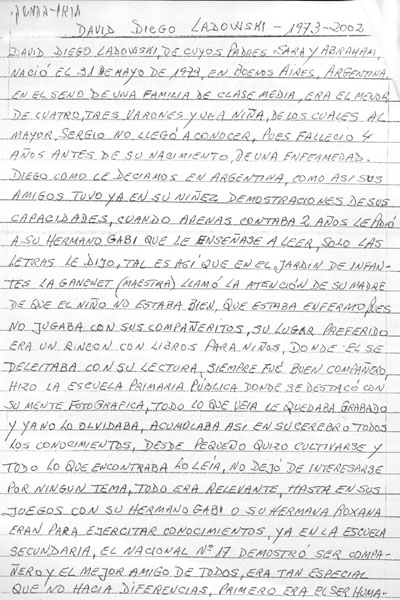 DAVID DIEGO LADOWSKI - 1973-2002
DAVID DIEGO LADOWSKI, DE CUYOS PADRES, SARA Y ABRAHAM,
NACIÓ EL 31 DE MAYO DE 1973, EN BUENOS AIRES, ARGENTINA,
EN EL SENO DE UNA FAMILIA DE CLASE MEDIA, ERA EL MENOR
DE CUATRO, TRES VARONES Y UNA NIÑA, DE LOS CUALES AL
MAYOR, SERGIO NO LLEGÓ A CONOCER, PUES FALLECIO 4
AÑOS ANTES DE SU NACIMIENTO, DE UNA ENFERMEDAD.
DIEGO COMO LE DECIAMOS EN ARGENTINA, COMO ASI SUS
AMIGOS TUVO YA EN SU NIÑEZ DEMOSTRACIONES DE SUS
CAPACIDADES, CUANDO APENAS CONTABA 2 AÑOS LE PIDIÓ
A SU HERMANO GABI QUE LE ENSEÑASE A LEER, SOLO LAS
LETRAS LE DIJO, TAL ES ASÍ QUE EN EL JARDIN DE INFAN-
TES LA GANENET (MAESTRA) LLAMÓ LA ATENCIÓN DE SU MADRE
DE QUE EL NIÑO NO ESTABA BIEN, QUE ESTABA ENFERMO PUES
NO JUGABA CON SUS COMPAÑERITOS, SU LUGAR PREFERIDO
ERA UN RINCON CON LIBROS PARA NIÑOS, DONDE EL SE
DELEITABA CON SU LECTURA, SIEMPRE FUÉ BUEN COMPAÑERO,
HIZO LA ESCUELA PRIMARIA PÚBLICA DONDE SE DESTACÓ CON
SU MENTE FOTOGRAFICA, TODO LO QUE VEIA LE QUEDABA GRABADO
Y YA NO LO OLVIDABA, ACUMOLABA ASI EN SU CEREBRO TODOS
LOS CONOCIMIENTOS, DESDE PEQUEÑO QUIZO CULTIVARSE Y
TODO LO QUE ENCONTRABA LO LEÍA, NO DEJÓ DE INTERESARSE
POR NINGUN TEMA, TODO ERA RELEVANTE, HASTA EN SUS
JUEGOS CON SU HERMANO GABI O SU HERMANA ROXANA
ERAN PARA EJERCITAR CONOCIMIENTOS, YA EN LA ESCUELA
SECUNDARIA, EL NACIONAL Nº 17 DEMOSTRÓ SER COMPA-
ÑERO Y EL MEJOR AMIGO DE TODOS, ERA TAN ESPECIAL
QUE NO HACIA DIFERENCIAS, PRIMERO ERA EL SER HUMA-